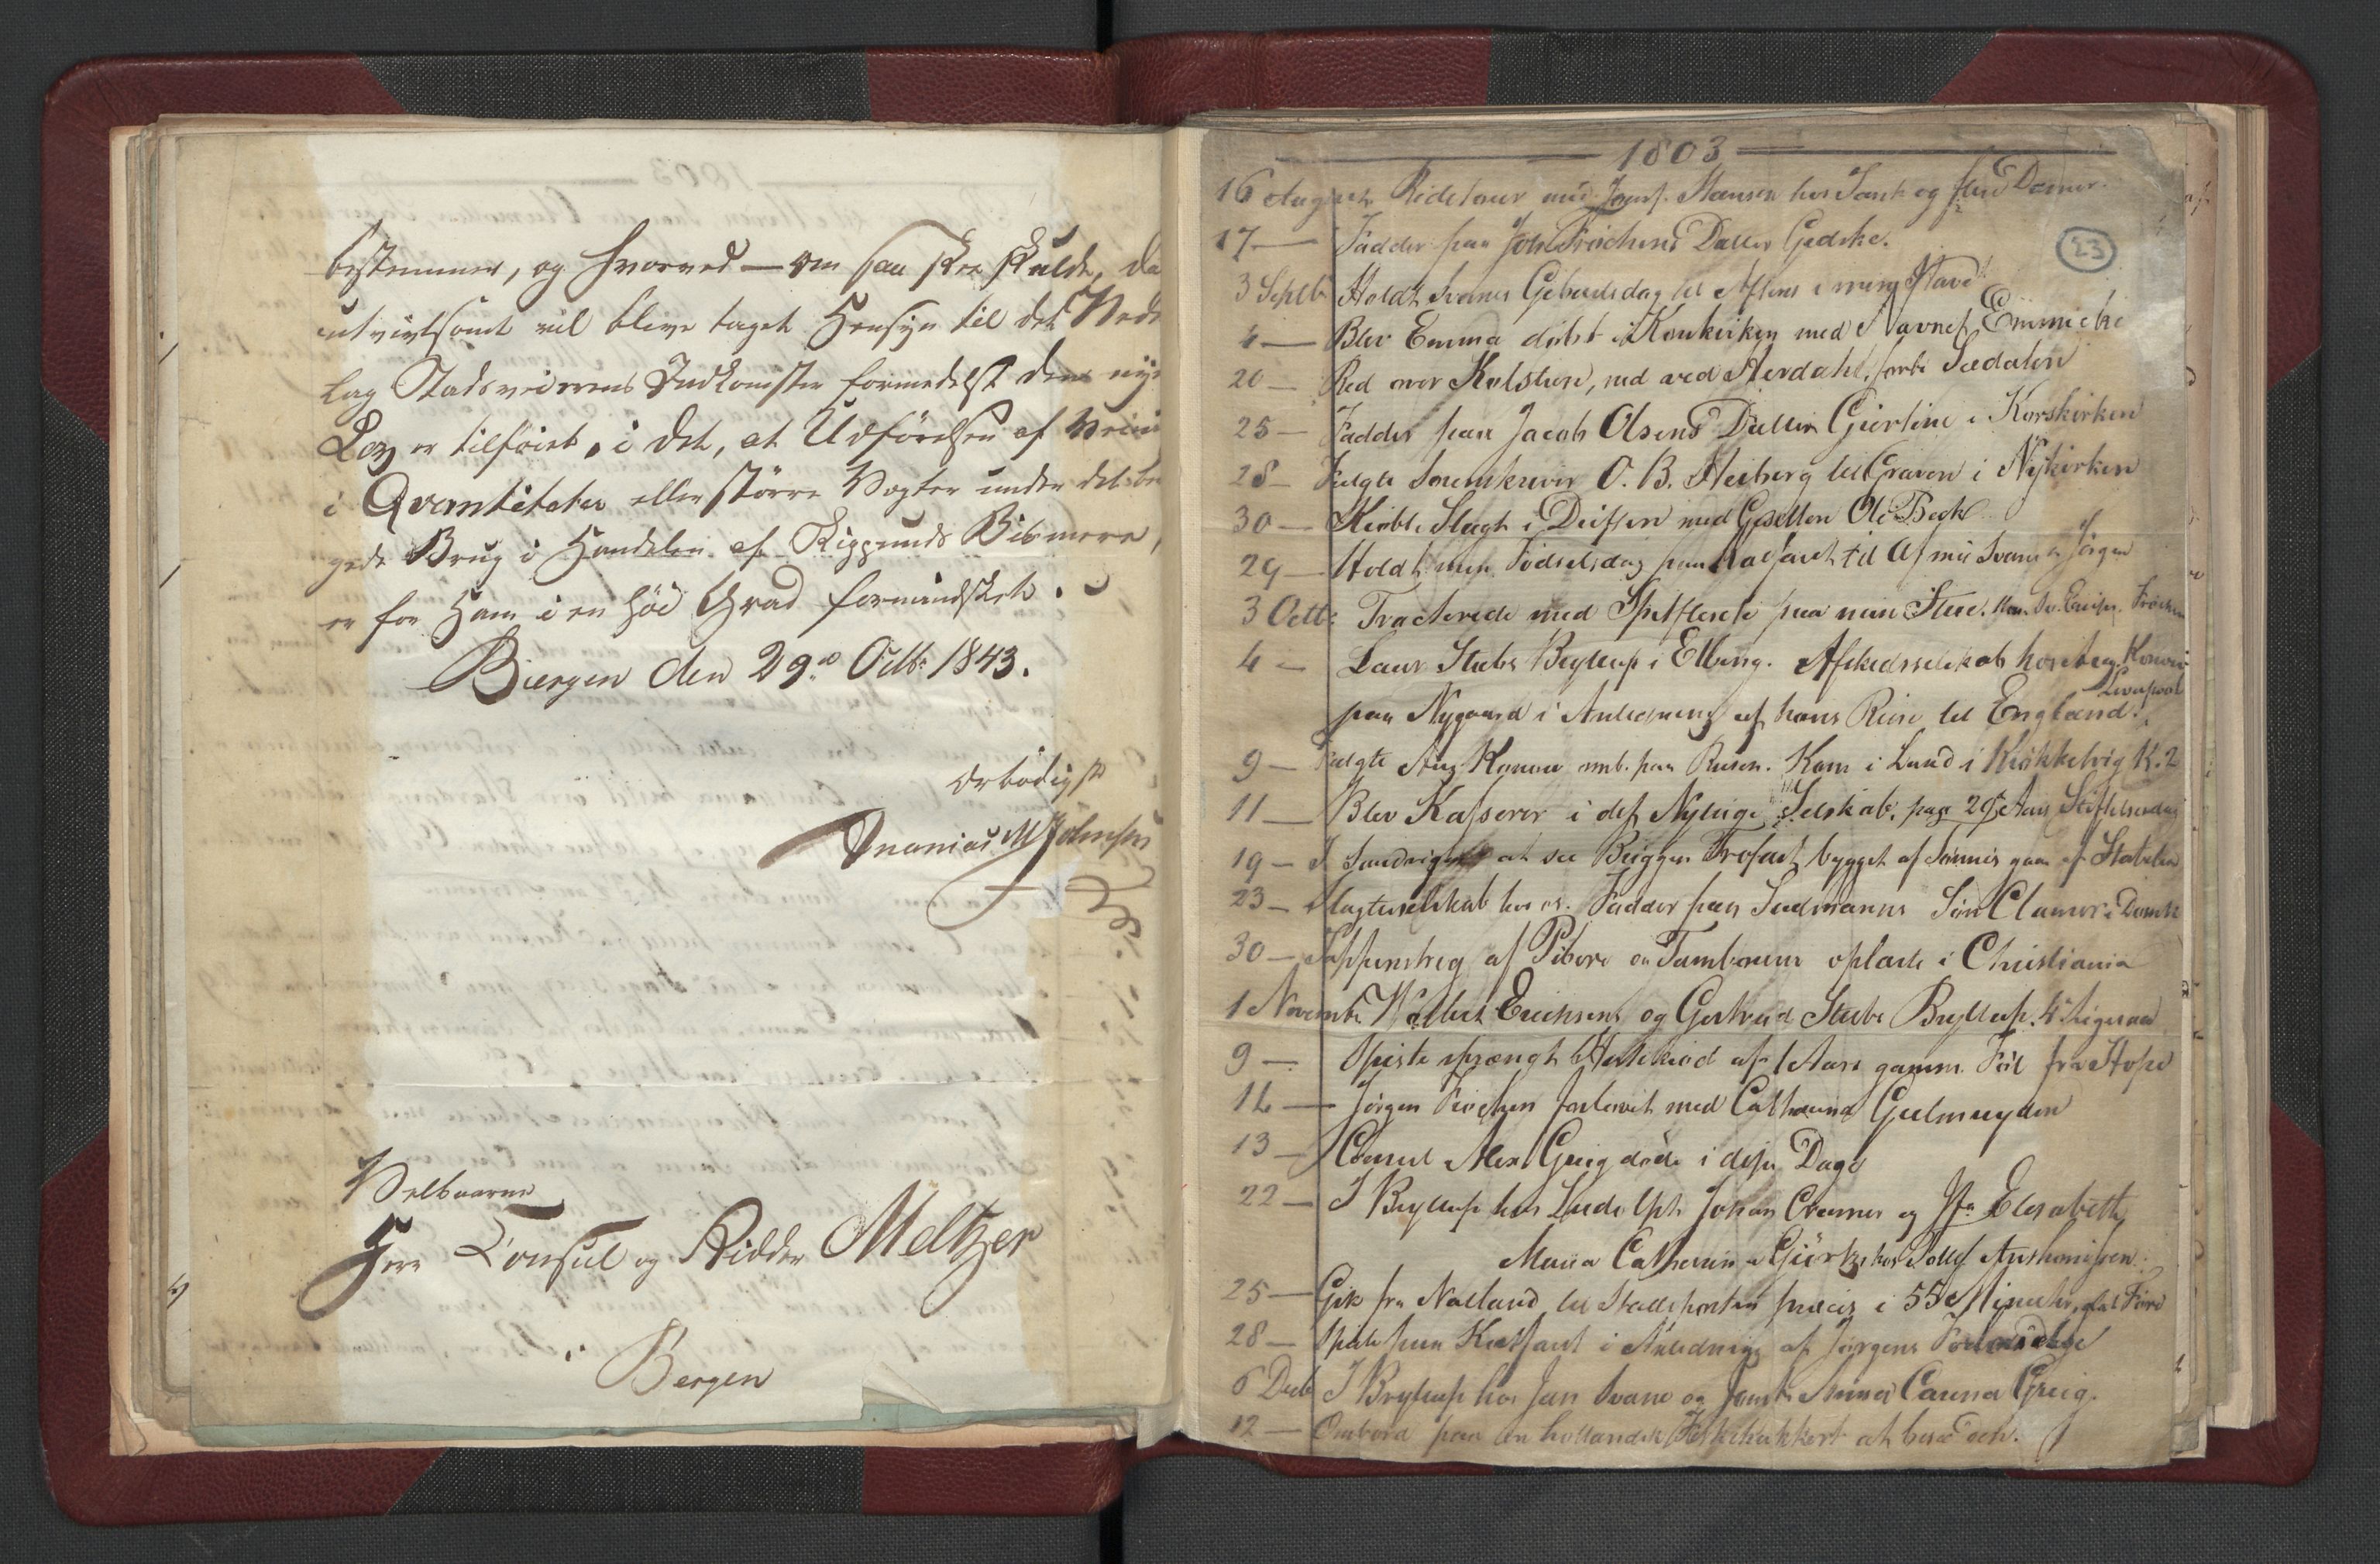 bestemmer, og hvorved — om saa skee skulde, da
utvivlsomt vil blive taget Hensyn til det Nede
lag Stadsveierens Indkomster formedelst den nye
Lov er tilføiet, i det, at Udførelsen af
i Qvantiteter eller større Vegter under det
gede Brug i Handelen af Bismere,
er for Ham i en høi Grad formindsket.
Bergen den 29de Octbr 1843.
Ærbødigst
Ananias M
Velbaarne
Herr Consul og Ridder Meltzer
i
Bergen
1803
23
16 August Ridetour med Hansen hos og flere Damer.
17 — Fadder paa Joh. Frichens Datter Gedske.
3 Septb Holdt Svanes Gebursdag til Aftens i min Have
4 — Blev Emma døbt i Korskirken med Navnet Emmiche
20 — Red over Kolstien, ned ved Sterdahl, forbi Sædalen
25 — Fadder paa Jacob Olsens Datter Giertine i Korskirken
28 — Fulgte Sorenskriver O. B. Heiberg til Graven i Nykirken
30 — Kiøbte Slagt i Driften med Gesellen Ole Beck
29 — Holdt min Fødselsdag paa Kalfaret til Af Svane Jørgen
3 Octb: Tracterede med Spekflesk paa min Stue.
4 — Laur. Stubs Bryllup i Elbing. Afskedsselskab hos Aug. Konow
Liverpool
paa Nygaard i Anledning af hans Reise til England.
9 — Fulgte Aug Konow omb. paa Reisen. Kom i Land i Kiøkkelvig K. 2
11 — Blev Kasserer i det Nyttige Selskab, paa 29 Aars Stiftelsesdag
19 — I Sandvigen at see Briggen Trofast bygget af gaae af Stabelen
23 — Slagteselskab hos os. Fadder paa Sudmanns Søn Clamer i Domk
30 — Tappenstreg af Pibere og Tambourer oplærte i Christiania
1 Novembr Wollert Erichsens og Gertrud Stubs Bryllup.
9 — Spiste sprængt Hestekiød af 1 Aars gamm. Føl fra Hope
12 — Jørgen Frichen forlovet med Catharina Gulmeyden
13 — Consul Alex Grieg døde i disse Dage
22 — I Bryllup hos Ludolph Johan Cramer og Jfr Elisabeth
Maria Catharina Giørtz hos Tollef Anthonissen.
25 — Gik fra Natland til Stadsporten præcis i 55 Minuter, glat Føre
28 — Spiste paa Kalfaret i Anledning af Jørgens Forlovelse
6 Decb I Bryllup hos Jan Svane og Jomf. Anna Carina Grieg.
12 — Ombord paa en hollandsk Fiskehukkert at besee den.